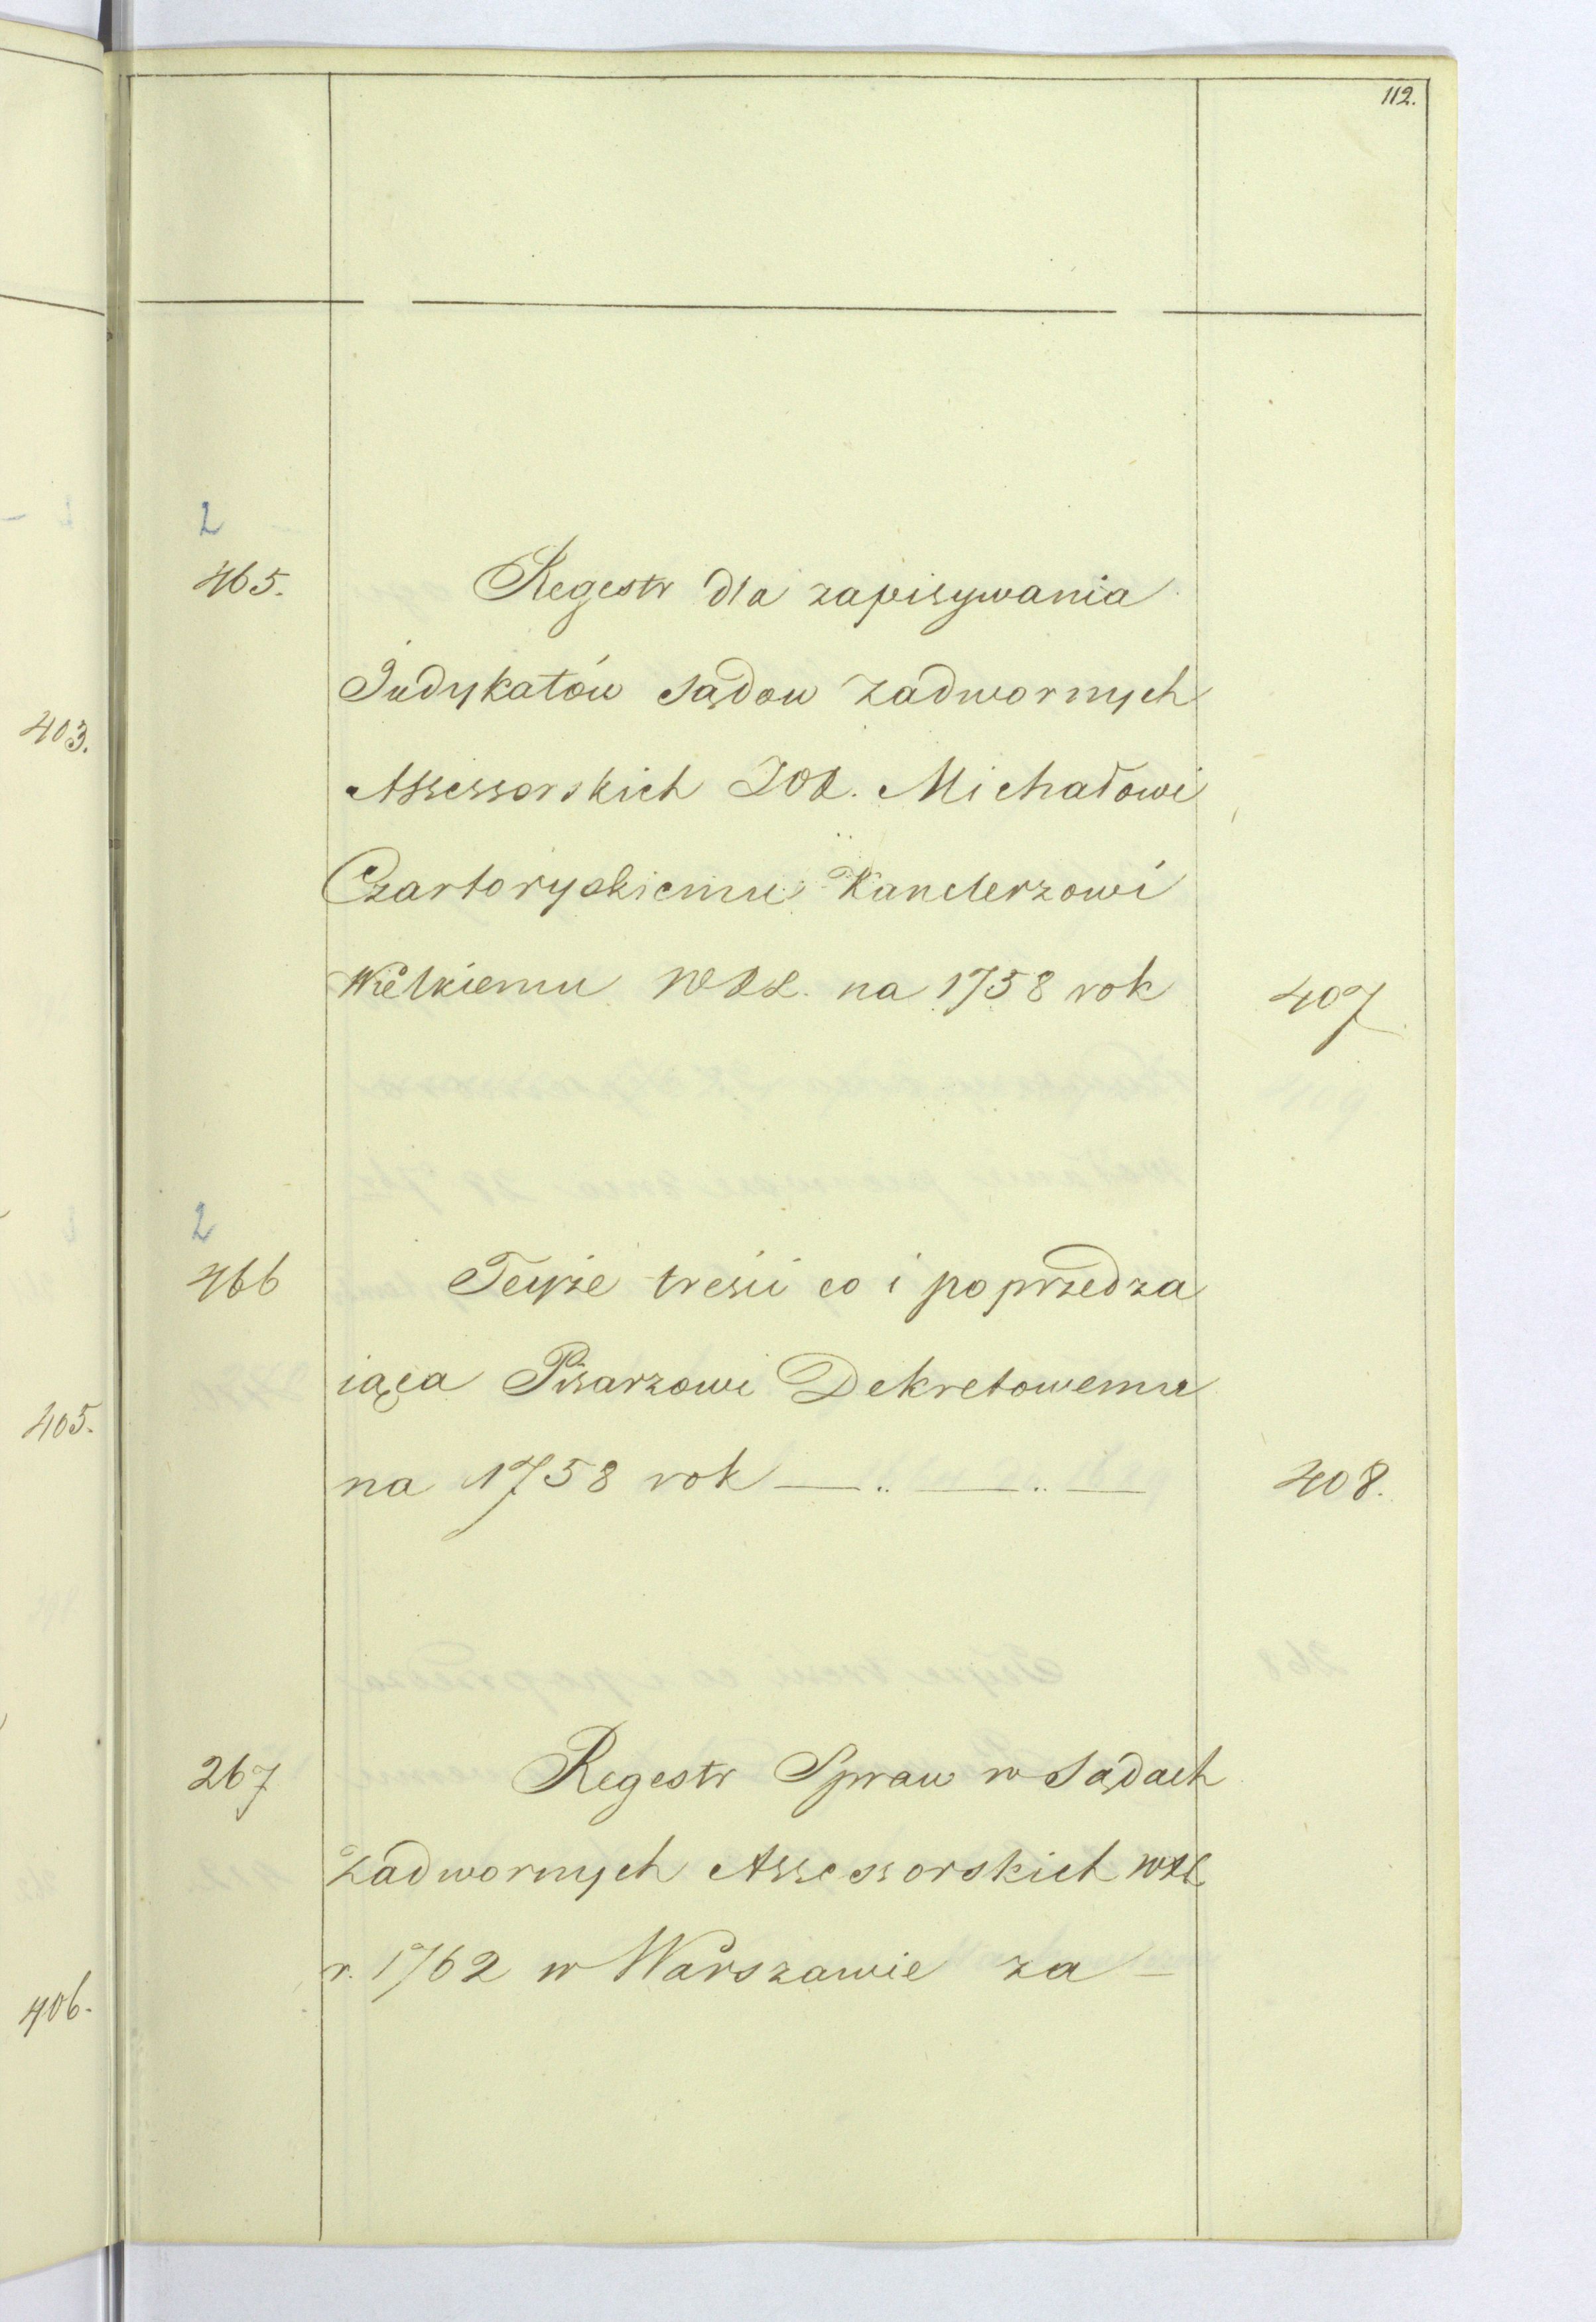 112.
2
465.
Regestr dla zapisywania
Judykatów sądow zadwornych
403.
Assessorskich JOX. Michałowi
Czartoryskiemu Kanclerzowi
Wielkiemu WXL. na 1758 rok
407
2
466
Teyże treści co i poprzedza
iąca Pisarzowi Dekretowemu
405.
na 1758 rok — .. — .. —
408.
267
Regestr Spraw w Sądach
Zadwornych Assessorskich WXL
r. 1762 w Warszawie za —
406.